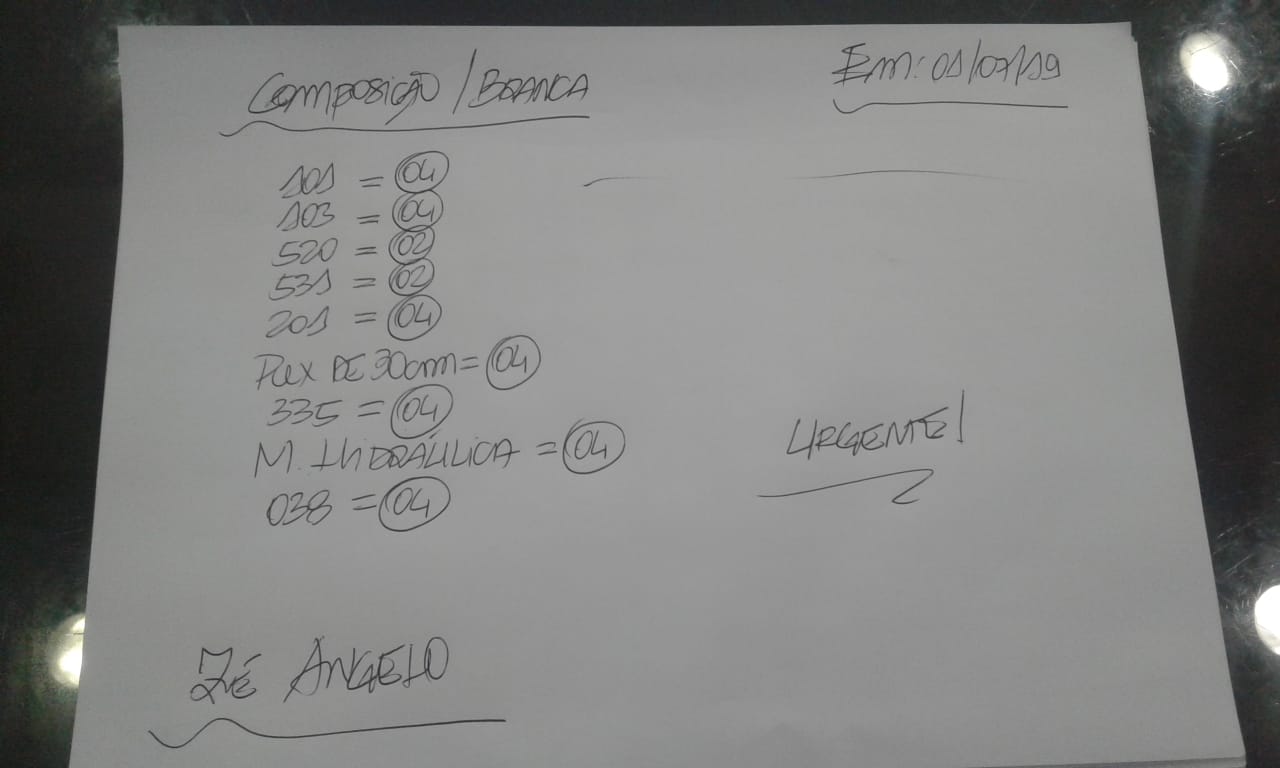 Composição / BRANCA
Em: 01/07/19
101 = 04
103 = 04
520 = 02
531 = 02
201 = 04
PUX DE 30cm = 04
335 = 04
M. HIDRÁULICA = 04
038 = 04
URGENTE!
ZÉ ANGELO